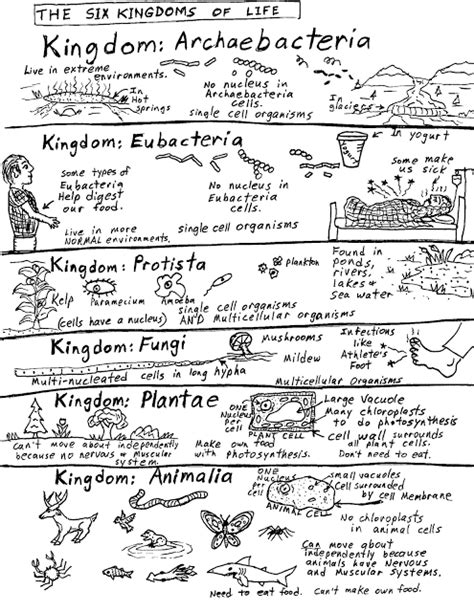 THE SIX KINGDOMS OF LIFE
Kingdom: Archaebacteria
Live in extreme
environments.
In
Hot
springs
No nucleus in
Archaebacteria
cells.
single cell organisms
In
glaciers
Kingdom: Eubacteria
Some types of
Eubacteria
Help digest
our food.
Live in more
NORMAL environments.
No nucleus in
Eubacteria
cells.
single cell organisms
Yogurt
In yogurt
Some make
us sick
Kingdom: Protista
Kelp
Paramecium
Amoeba
plankton
single cell organisms
(cells have a nucleus) AND Multicellular organisms
Found in
ponds,
rivers,
lakes &
Sea water
Kingdom: Fungi
Mushrooms
Mildew
Multi-nucleated cells in long hypha
Multicellular Organisms
Infections
like
Athlete's
Foot
Kingdom: Plantae
Can't move about independently
because no nervous & Muscular
system.
ONE
Nucleus
per
cell
PLANT CELL
Make own food
with photosynthesis.
Large Vacuole
Many chloroplasts
to do photosynthesis
cell wall surrounds
all plant cells.
Don't need to eat.
Kingdom: Animalia
ONE
Nucleus
per
cell
ANIMAL CELL
small vacuoles
Cell surrounded
by cell Membrane
No chloroplasts
in animal cells
Can move about
independently because
animals have Nervous
and Muscular systems.
Need to eat food. Can't make own food.